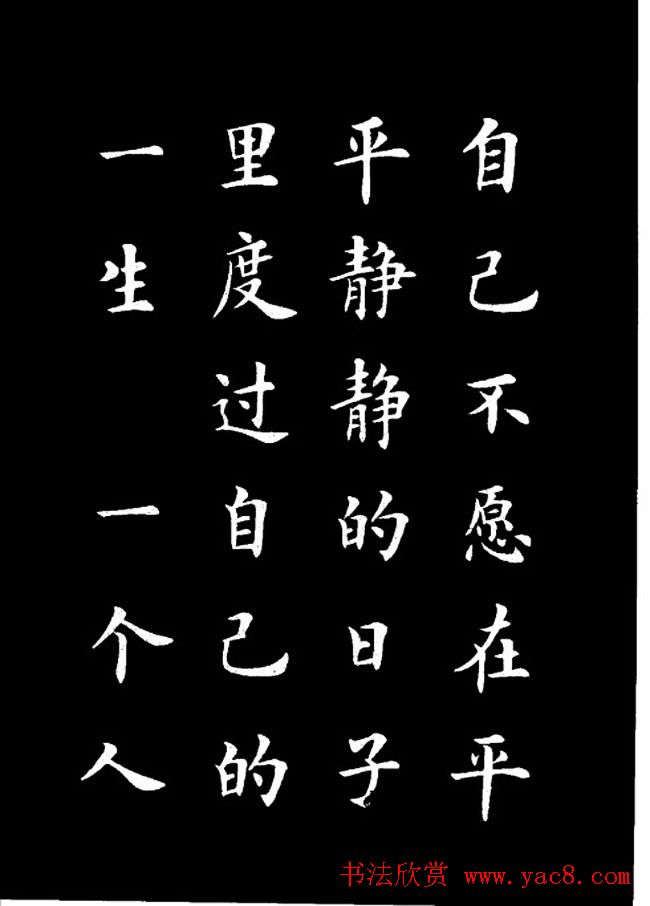 自己不愿在平
平静静的日子
里度过自己的
一生 一个人
书法欣赏 www.yac8.com